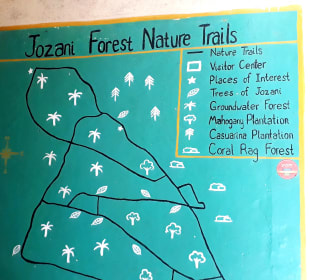 Jozani Forest Nature Trails
Nature Trails
Visitor Center
Places of Interest
Trees of Jozani
Groundwater Forest
Mahogany Plantation
Casuarina Plantation
Coral Rag Forest